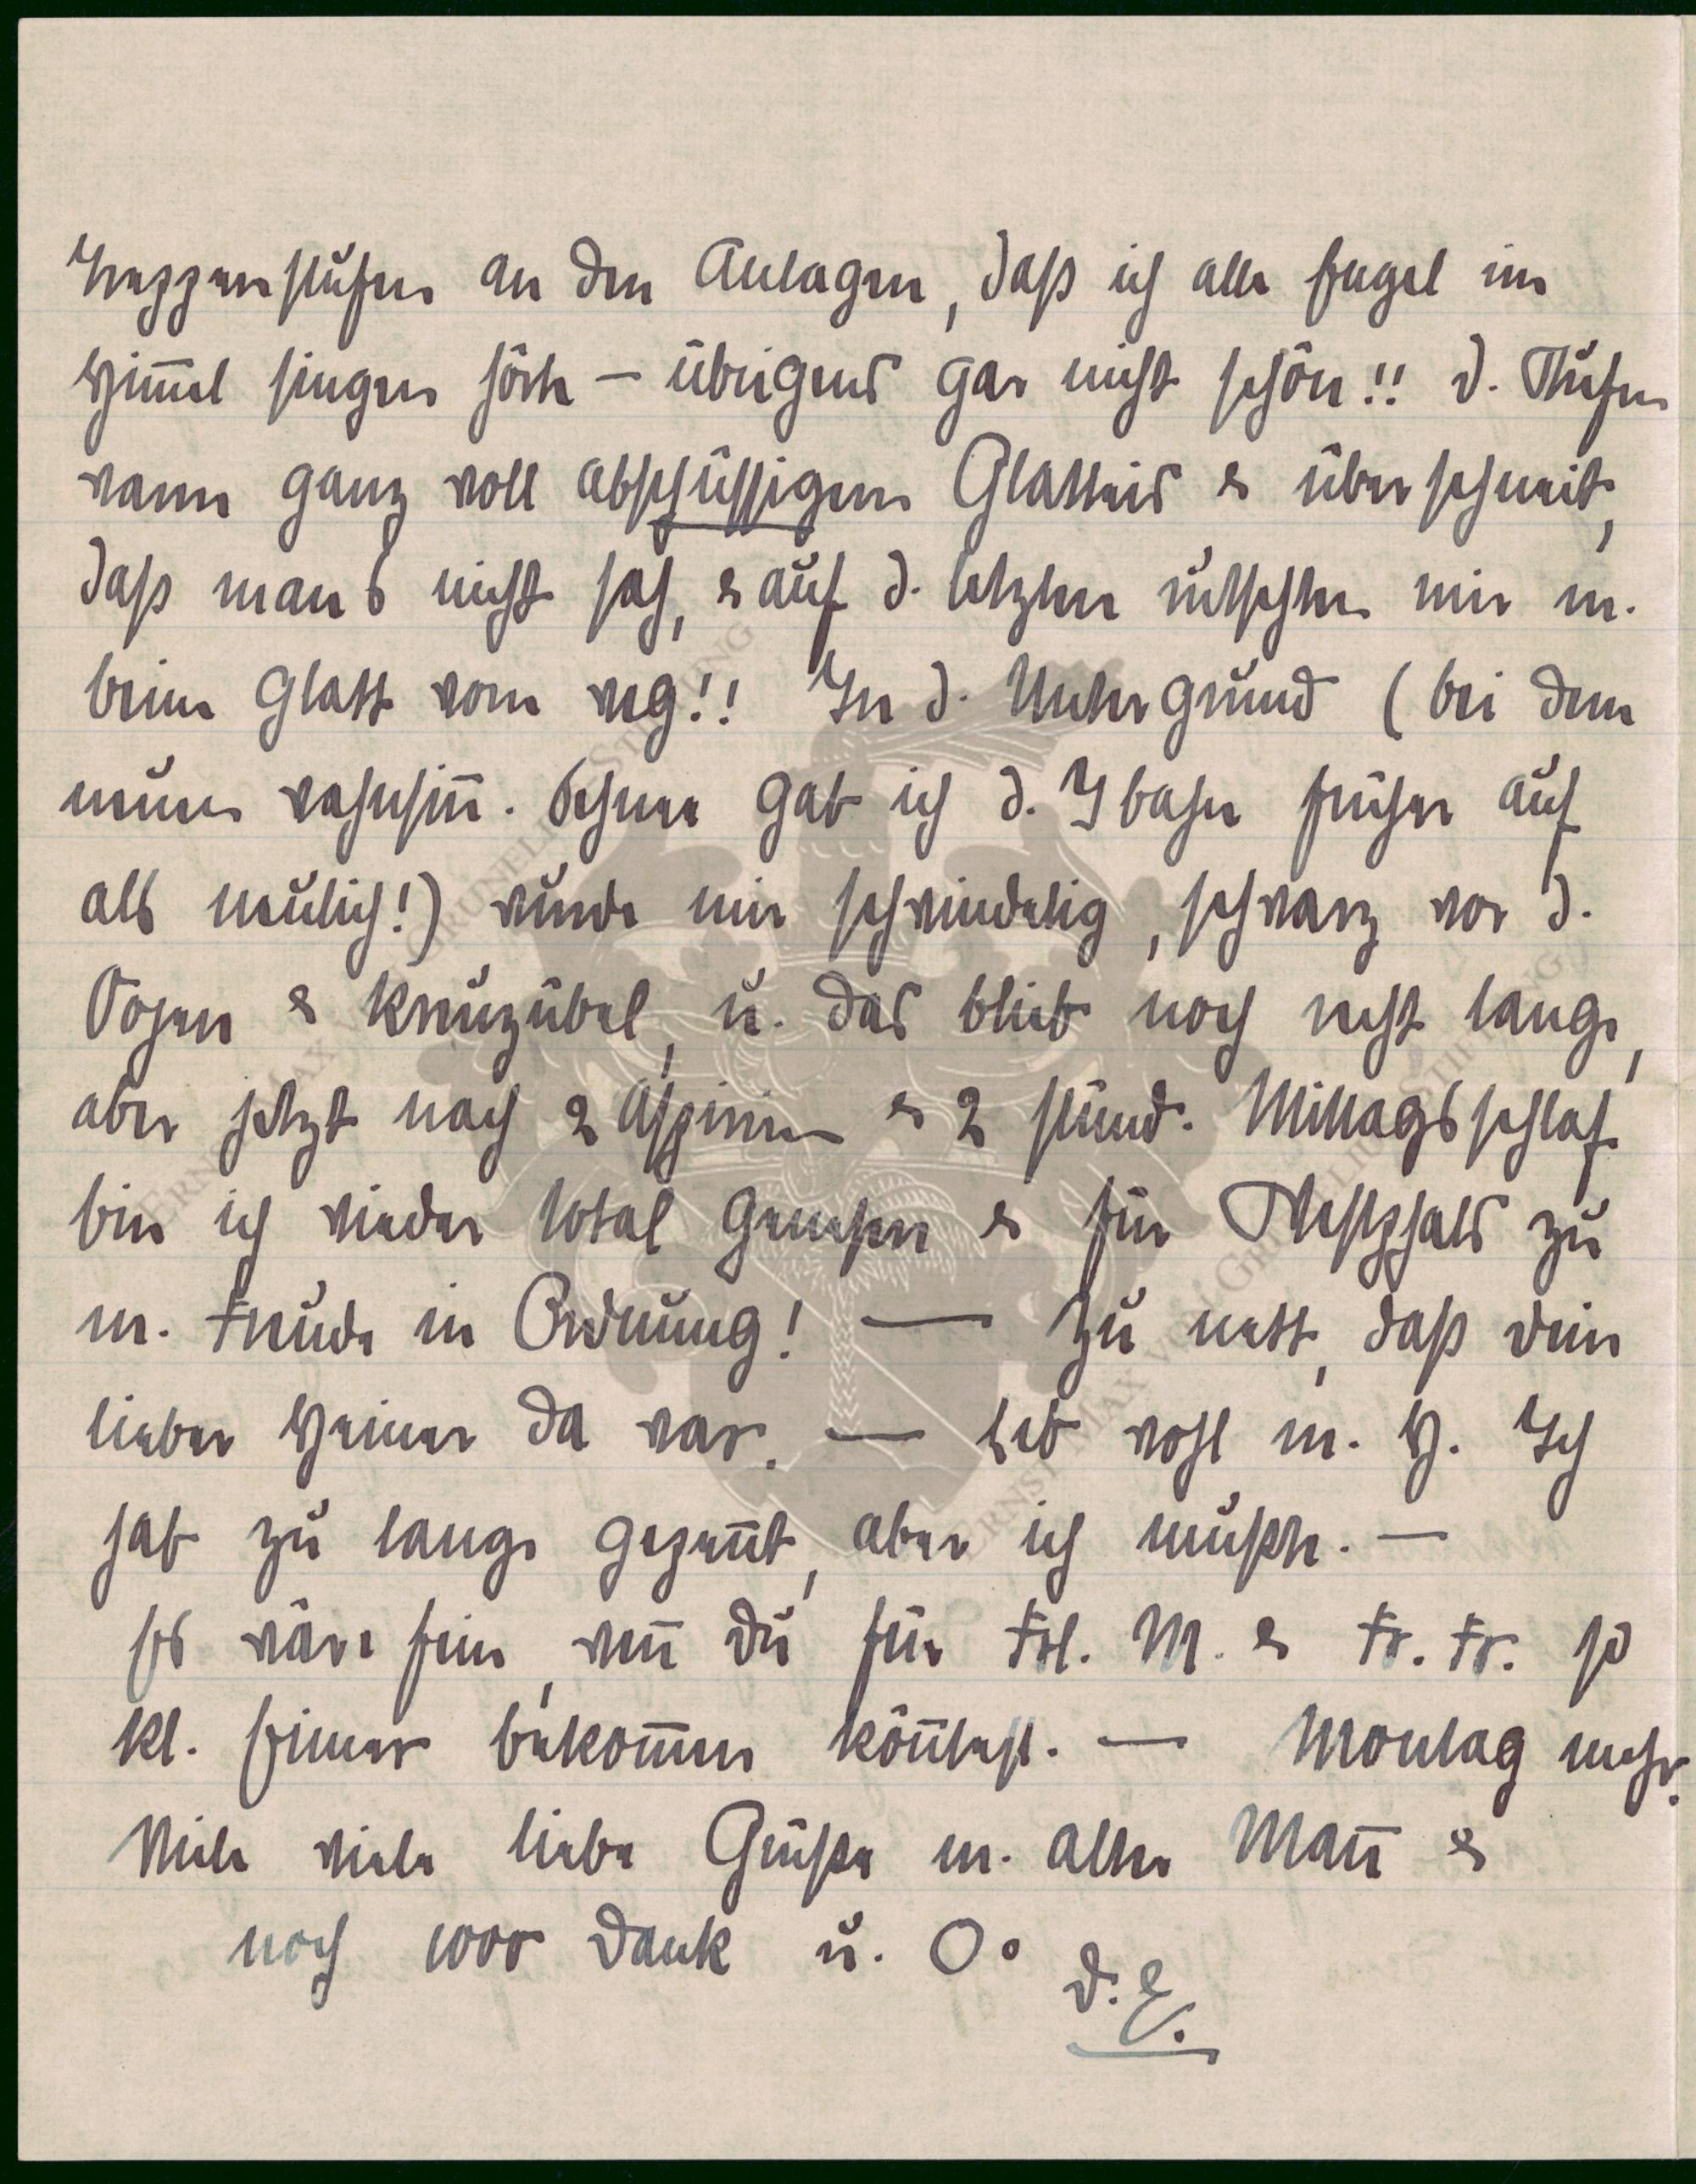 Treppenstufen an den Anlagen, daß ich alle Engel im
Himmel singen hörte – übrigens gar nicht schön!! D. Stufen
waren ganz voll abschüssigem Glatteis & überschneit,
daß mans nicht sah, & auf d. letzten rutschten mir m.
beine glatt vorn weg!! In d. Untergrund (bei dem
neuen wahnsinn. Schnee gab ich d. I bahn früher auf
als neulich!) wurde mir schwindelig, schwarz vor d.
Oogen & kreuzübel, u. das blieb noch recht lange,
aber jetzt nach 2 Aspirin & 2 stünd. Mittagsschlaf
bin ich wieder total genesen & für
zu
m. Freude in Ordnung! — Zu nett, daß dein
lieber Heiner da war. — Leb wohl m. H. Ich
hab zu lange gepennt, aber ich mußte. —
Es wäre fein, wenn du für Frl. M. & Fr. Fr. so
kl. Eimer bekommen könntest. — Montag mehr.
Viele viele liebe Grüße m. alter Mann &
noch 1000 Dank u. O°
D. E.
ERNST MAX VON GRUNELIUS-STIFTUNG
ERNST MAX VON GRUNELIUS-STIFTUNG